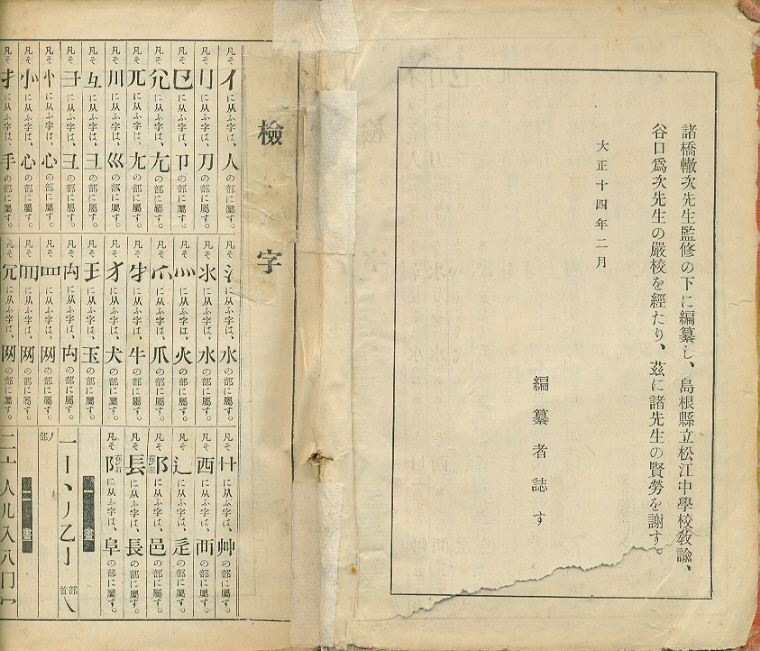 諸橋轍次先生監修の下に編纂し、島根縣立松江中學校敎諭、
谷口爲次先生の嚴校を經たり、玆に諸先生の賢勞を謝す。
大正十四年二月
編纂者誌す
檢字
凡そ亻に从ふ字は、人の部に屬す。
凡そ刂に从ふ字は、刀の部に屬す。
凡そ㔾に从ふ字は、卩の部に屬す。
凡そ尣に从ふ字は、尢の部に屬す。
凡そ兀に从ふ字は、尢の部に屬す。
凡そ川に从ふ字は、巛の部に屬す。
凡そ彑に从ふ字は、彐の部に屬す。
凡そ⺕に从ふ字は、彐の部に屬す。
凡そ忄に从ふ字は、心の部に屬す。
凡そ⺗に从ふ字は、心の部に屬す。
凡そ扌に从ふ字は、手の部に屬す。
凡そ氵に从ふ字は、水の部に屬す。
凡そ氺に从ふ字は、水の部に屬す。
凡そ灬に从ふ字は、火の部に屬す。
凡そ爫に从ふ字は、爪の部に屬す。
凡そ牜に从ふ字は、牛の部に屬す。
凡そ犭に从ふ字は、犬の部に屬す。
凡そ王に从ふ字は、玉の部に屬す。
凡そ禸に从ふ字は、禸の部に屬す。
凡そ罒に从ふ字は、网の部に屬す。
凡そ罓に从ふ字は、网の部に屬す。
凡そ㓁に从ふ字は、网の部に屬す。
凡そ艹に从ふ字は、艸の部に屬す。
凡そ西に从ふ字は、襾の部に屬す。
凡そ辶に从ふ字は、辵の部に屬す。
凡そ阝に从ふ字は、邑の部に屬す。
凡そ镸に从ふ字は、長の部に屬す。
凡そ阝に从ふ字は、阜の部に屬す。
一畫
一丨丶丿乙亅
二畫
二亠人儿入八冂冖